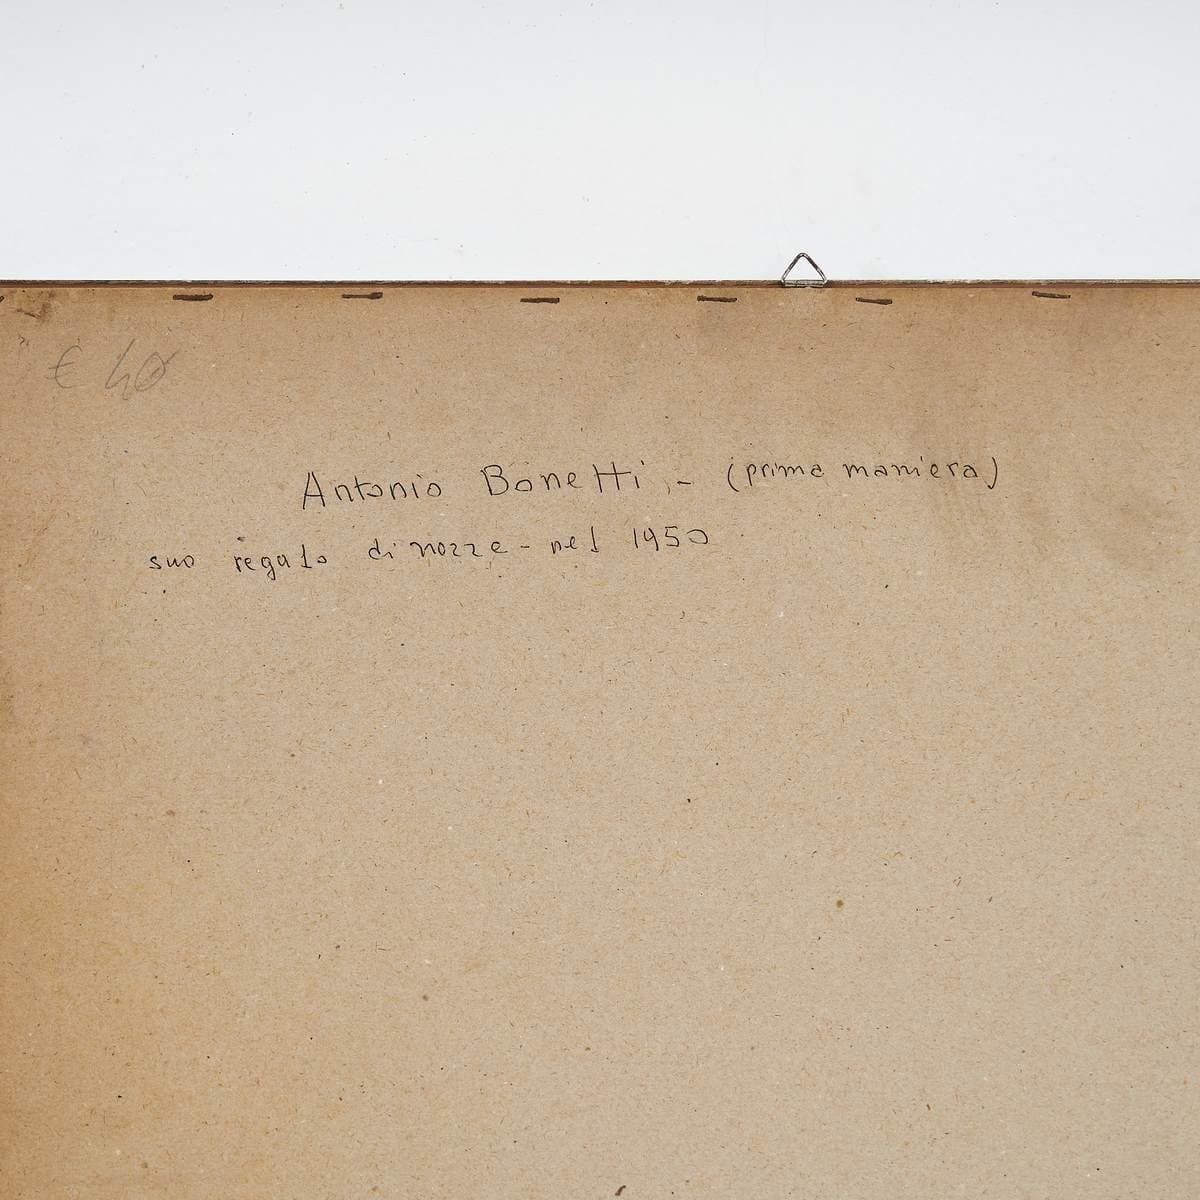 € 40
Antonio Bonetti - (prima maniera)
suo regalo di nozze - nel 1950